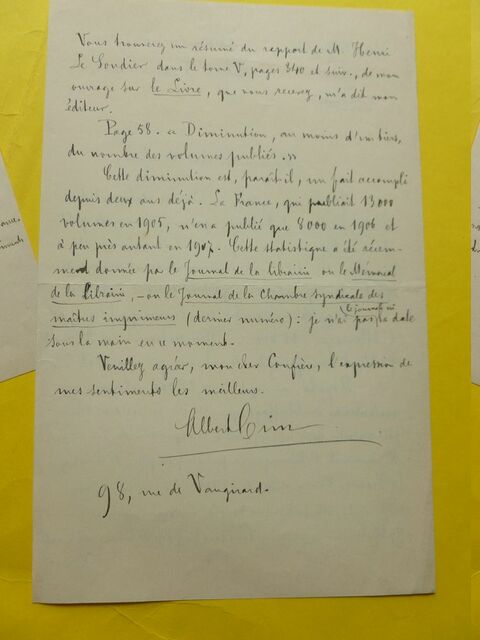 Vous trouverez un résumé du rapport de M. Henri
Le Soudier dans le tome V, pages 340 et suiv., de mon
ouvrage sur le Livre, que vous recevez, m'a dit mon
éditeur.
Page 58. « Diminution, au moins d'un tiers,
du nombre des volumes publiés. »
Cette diminution est, paraît-il, un fait accompli
depuis deux ans déjà. La France, qui publiait 13000
volumes en 1905, n'en a publié que 8000 en 1906 et
à peu près autant en 1907. Cette statistique a été récem-
ment donnée par le Journal de la librairie ou le Mémorial
de la Librairie, – ou le Journal de la Chambre syndicale des
maîtres imprimeurs (dernier numéro) : je n'ai pas le journal ni sa date
sous la main en ce moment.
Veuillez agréer, mon cher Confrère, l'expression de
mes sentiments les meilleurs.
Albert Cim
98, rue de Vaugirard.